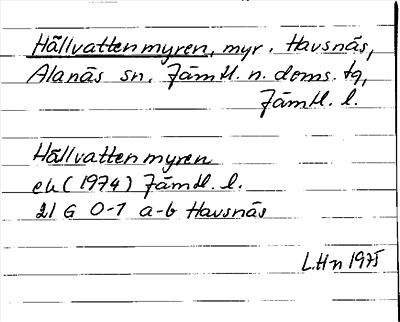 Hällvattenmyren, myr. Havsnäs,
Alanäs sn. Jämtl. n. doms. tg,
Jämtl. l.
Hällvattenmyren
ek (1974) Jämtl. l.
21 G 0-1 a-b Havsnäs
L.Hn 1975